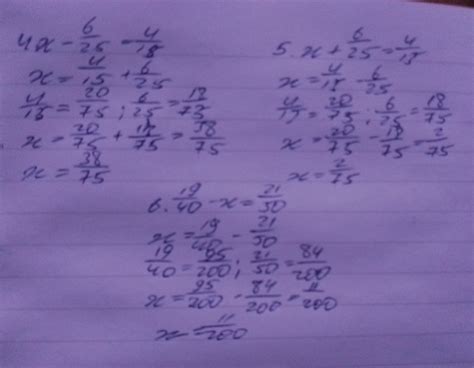 4. x - 6/25 = 4/15
x = 4/15 + 6/25
4/15 = 20/75 ; 6/25 = 18/75
x = 20/75 + 18/75 = 38/75
x = 38/75
5. x + 6/25 = 4/15
x = 4/15 - 6/25
4/15 = 20/75 ; 6/25 = 18/75
x = 20/75 - 18/75 = 2/75
x = 2/75
6. 19/40 - x = 21/50
x = 19/40 - 21/50
19/40 = 95/200 ; 21/50 = 84/200
x = 95/200 - 84/200 = 11/200
x = 11/200